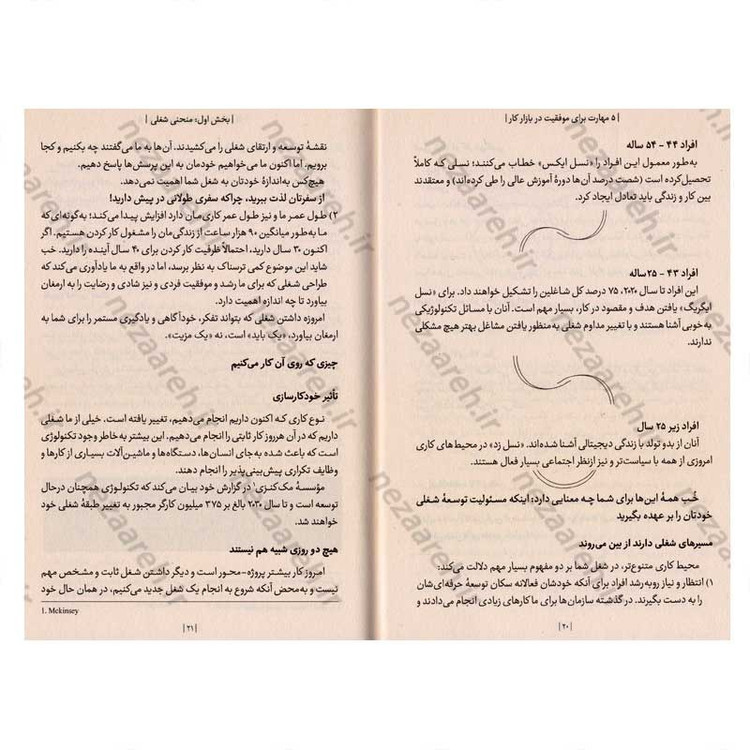 | ۵ مهارت برای موفقیت در بازار کار |
افراد ۴۴ - ۵۴ ساله
به‌طور معمول این افراد را «نسل ایکس» خطاب می‌کنند؛ نسلی که کاملاً
تحصیل‌کرده است (شصت درصد آن‌ها دورهٔ آموزش عالی را طی کرده‌اند) و معتقدند
بین کار و زندگی باید تعادل ایجاد کرد.
افراد ۴۳ - ۲۵ساله
این افراد تا سال ۲۰۲۰، ۷۵ درصد کل شاغلین را تشکیل خواهند داد. برای «نسل
ایگریگ» یافتن هدف و مقصود در کار، بسیار مهم است. آنان با مسائل تکنولوژیکی
به‌خوبی آشنا هستند و با تغییر مداوم شغلی به‌منظور یافتن مشاغل بهتر هیچ مشکلی
ندارند.
افراد زیر ۲۵ سال
آنان از بدو تولد با زندگی دیجیتالی آشنا شده‌اند. «نسل زد» در محیط‌های کاری
امروزی از همه با سیاست‌تر و نیز ازنظر اجتماعی بسیار فعال هستند.
خُب همهٔ این‌ها برای شما چه معنایی دارد: اینکه مسئولیت توسعهٔ شغلی
خودتان را بر عهده بگیرید
مسیرهای شغلی دارند از بین می‌روند
محیط کاری متنوع‌تر، در شغل شما بر دو مفهوم بسیار مهم دلالت می‌کند:
۱) انتظار و نیاز روبه‌رشد افراد برای آنکه خودشان فعالانه سکان توسعهٔ حرفه‌ای‌شان
را به دست بگیرند. در گذشته سازمان‌ها برای ما کارهای زیادی انجام می‌دادند و
| ۲۰ |
| بخش اول: منحنی شغلی |
نقشهٔ توسعه و ارتقای شغلی را می‌کشیدند. آن‌ها به ما می‌گفتند چه بکنیم و کجا
برویم. اما اکنون ما می‌خواهیم خودمان به این پرسش‌ها پاسخ دهیم.
هیچ‌کس به‌اندازهٔ خودتان به شغل شما اهمیت نمی‌دهد.
از سفرتان لذت ببرید، چراکه سفری طولانی در پیش دارید!
۲) طول عمر ما و نیز طول عمر کاری‌مان دارد افزایش پیدا می‌کند؛ به‌گونه‌ای که
ما به‌طور میانگین ۹۰ هزار ساعت از زندگی‌مان را مشغول کار کردن هستیم. اگر
اکنون ۳۰ سال دارید، احتمالاً ظرفیت کار کردن برای ۴۰ سال آینده را دارید. خب
شاید این موضوع کمی ترسناک به نظر برسد، اما در واقع به ما یادآوری می‌کند که
طراحی شغلی که برای ما رشد و موفقیت فردی و نیز شادی و رضایت را به ارمغان
بیاورد تا چه اندازه اهمیت دارد.
امروزه داشتن شغلی که بتواند تفکر، خودآگاهی و یادگیری مستمر را برای شما به
ارمغان بیاورد، «یک باید» است، نه «یک مزیت».
چیزی که روی آن کار می‌کنیم
تأثیر خودکارسازی
نوع کاری که اکنون داریم انجام می‌دهیم، تغییر یافته است. خیلی از ما شغلی
داریم که در آن هرروز کار ثابتی را انجام می‌دهیم. این بیشتر به خاطر وجود تکنولوژی
است که باعث شده به‌جای انسان‌ها، دستگاه‌ها و ماشین‌آلات بسیاری از کارها و
وظایف تکراری پیش‌بینی‌پذیر را انجام دهند.
مؤسسهٔ مک‌کنزی۱ در گزارش خود بیان می‌کند که تکنولوژی همچنان درحال
توسعه است و تا سال ۲۰۲۰ بالغ بر ۳۷۵ میلیون کارگر مجبور به تغییر طبقهٔ شغلی خود
خواهند شد.
هیچ دو روزی شبیه هم نیستند
امروز کار بیشتر پروژه-محور است و دیگر داشتن شغل ثابت و مشخص مهم
نیست و به‌محض آنکه شروع به انجام یک شغل جدید می‌کنیم، در همان حال خود
1. Mckinsey
| ۲۱ |
nezaareh.ir